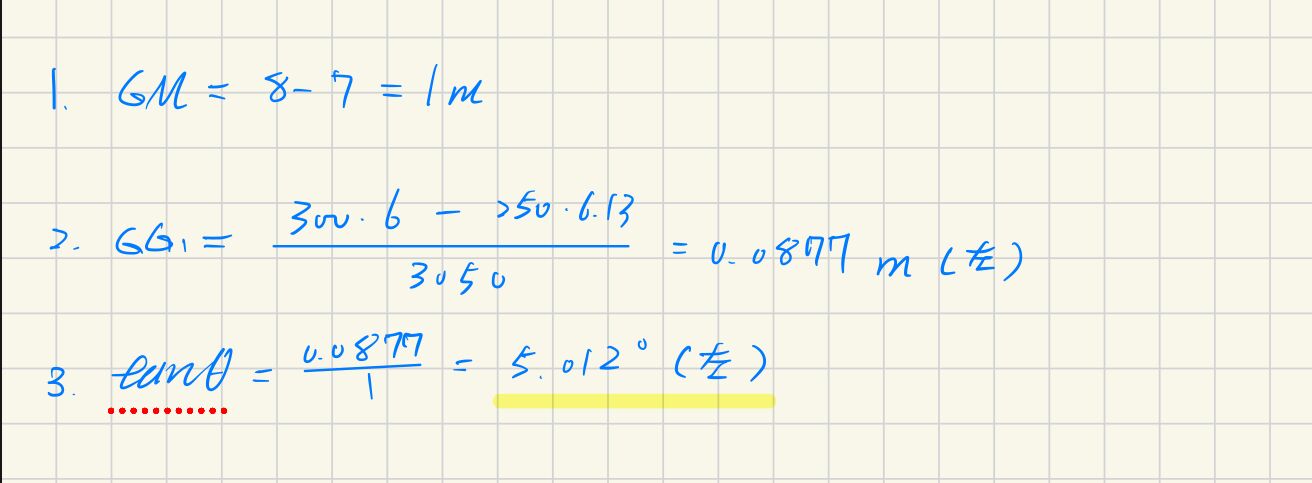 1. GM = 8 - 7 = 1 m
2. GG₁ = (300·6 - 250·6.13) / 3050 = 0.0877 m (左)
3. tanθ = 0.0877 / 1 = 5.012° (左)